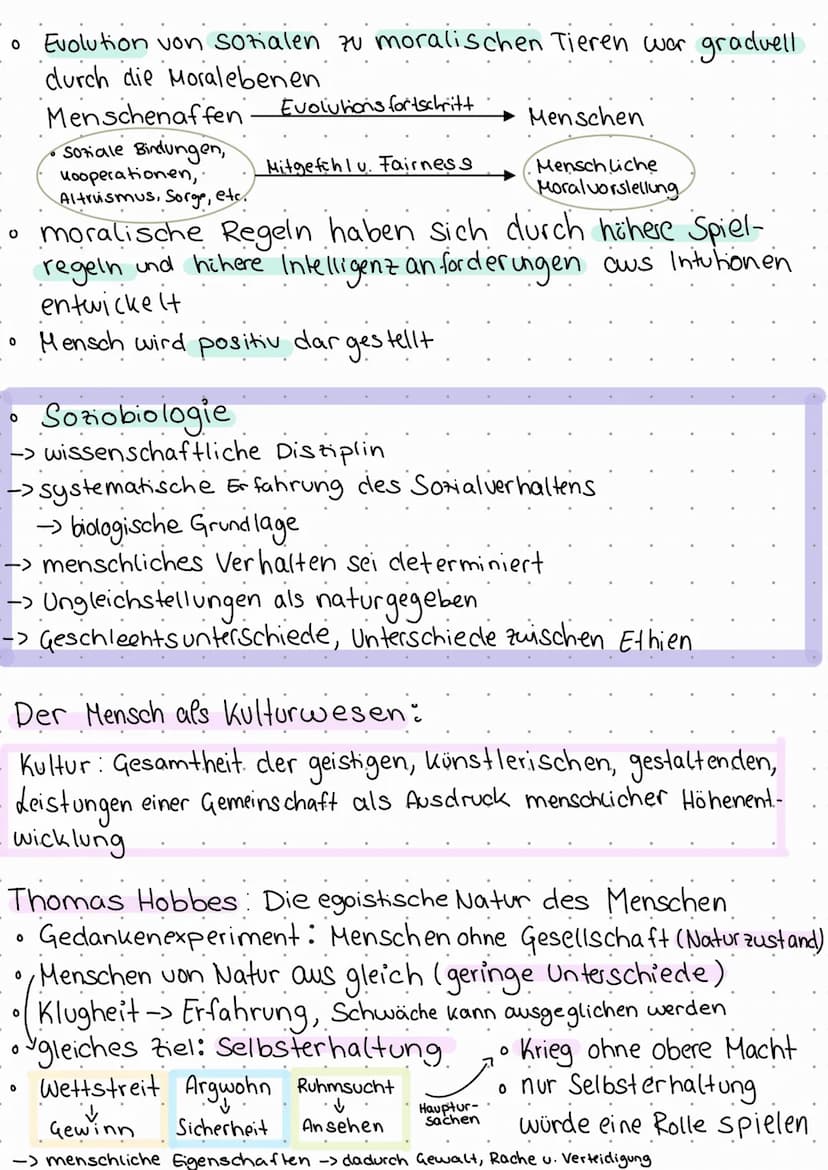 ◦ Evolution von sozialen zu moralischen Tieren war graduell
durch die Moralebenen
Menschenaffen Evolutionsfortschritt Menschen
• Soziale Bindungen,
Kooperationen,
Altruismus, Sorge, etc.
Mitgefühl u. Fairness
Menschliche
Moralvorstellung
◦ moralische Regeln haben sich durch höhere Spiel-
regeln und höhere Intelligenzanforderungen aus Intuitionen
entwickelt
◦ Mensch wird positiv dargestellt
◦ Soziobiologie
-> wissenschaftliche Disziplin
-> systematische Erfahrung des Sozialverhaltens
-> biologische Grundlage
-> menschliches Verhalten sei determiniert
-> Ungleichstellungen als naturgegeben
-> Geschlechtsunterschiede, Unterschiede zwischen Ethien
Der Mensch als Kulturwesen:
Kultur: Gesamtheit der geistigen, künstlerischen, gestaltenden,
Leistungen einer Gemeinschaft als Ausdruck menschlicher Höhenent-
wicklung
Thomas Hobbes: Die egoistische Natur des Menschen
• Gedankenexperiment: Menschen ohne Gesellschaft (Naturzustand)
• Menschen von Natur aus gleich (geringe Unterschiede)
• Klugheit -> Erfahrung, Schwäche kann ausgeglichen werden
• gleiches Ziel: Selbsterhaltung
• Wettstreit ↓ Gewinn
Argwohn ↓ Sicherheit
Ruhmsucht ↓ Ansehen
Hauptur-
sachen
◦ Krieg ohne obere Macht
◦ nur Selbsterhaltung
würde eine Rolle spielen
-> menschliche Eigenschaften -> dadurch Gewalt, Rache u. Verteidigung